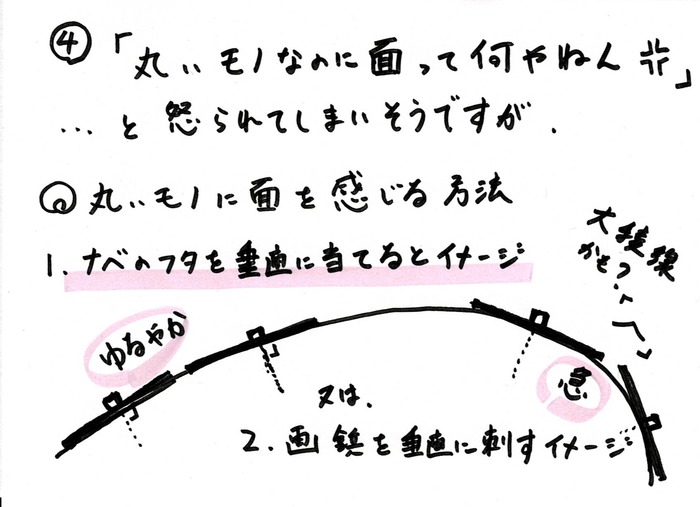 ④「丸いモノなのに面って何やねん💢」
… と怒られてしまいそうですが.
◎ 丸いモノに面を感じる方法
1. ナベのフタを垂直に当てるとイメージ
大積線
かも?
ゆるやか
急
又は.
2. 画鋲を垂直に刺すイメージ